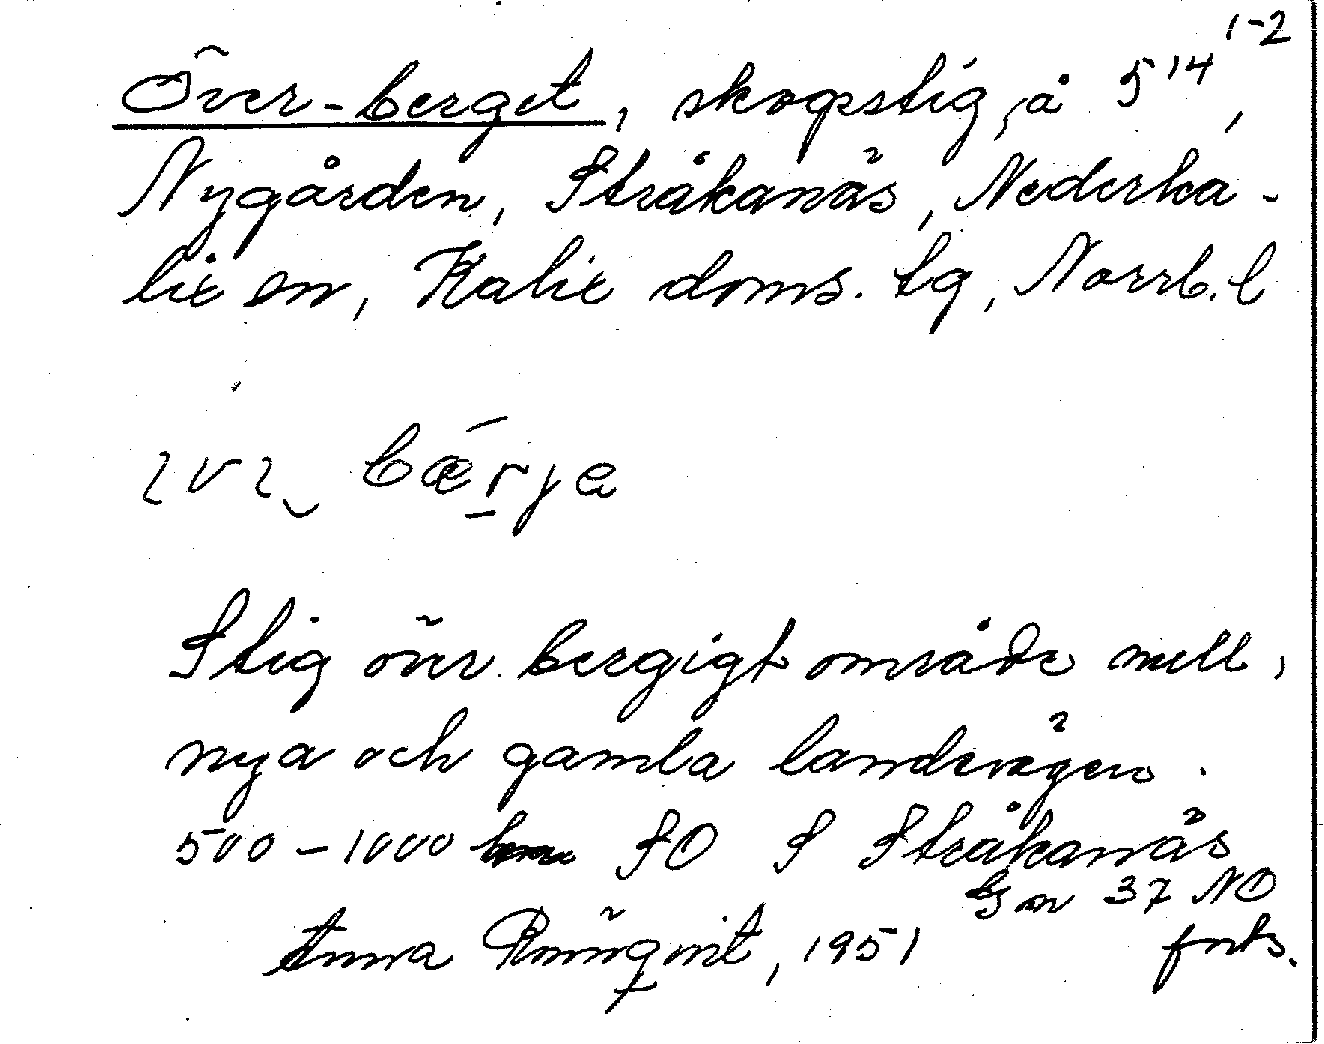 Över-berget, skogsstig, å 5¹⁴, ¹⁻²
Nygården, Stråkanäs, Nederka-
lix sn, Kalix doms. tg, Norrb. l
bǽrje
Stig över bergigt område mell.
nya och gamla landsvägen.
500-1000 SO S Stråkanäs
37 NO
Anna Rönnqvist, 1951 forts.